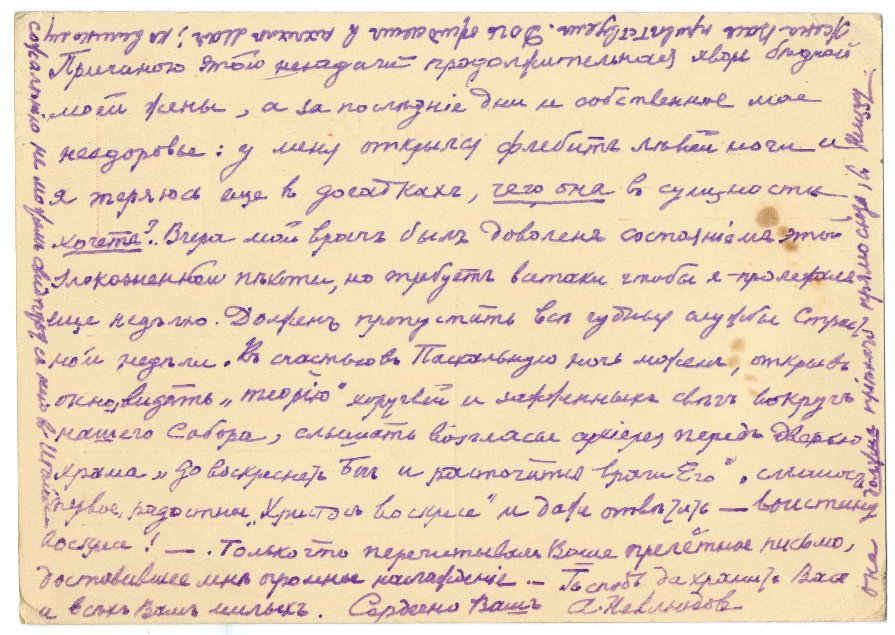 Причиною этой неудачи продолжительная хворь бѣдной
моей жены, а за послѣдніе дни и собственное мое
нездоровье: у меня открылся флебитъ лѣвой ноги и
я теряюсь еще въ догадкахъ, чего она въ сущности
хочетъ? Вчера мой врачъ былъ доволенъ состояніемъ этой
злокозненной, но требуетъ всетаки чтобы я пролежалъ
еще недѣлю. Долженъ пропустить всѣ службы Страст-
ной недѣли. Къ счастью въ Пасхальную ночь можемъ, открывъ
окно, видѣть „теорію“ хоругвей и зажженныхъ свѣчъ вокругъ
нашего Собора, слышать возгласы архіерея передъ дверью
храма „Да воскреснетъ Богъ и расточатся врази Его“, слышать
первое, радостное „Христосъ воскресе“ и даже отвѣтить — воистину
воскресе! —. Только что перечитывалъ Ваше прелестное письмо,
доставившее мнѣ огромное наслажденіе. — Господь да хранитъ Васъ
и всѣхъ Вашихъ милыхъ. Сердечно Вашъ А. Неклюдовъ
Жена Васъ привѣтствуетъ. Дочь пріѣдетъ въ началѣ Мая; къ великому
сожалѣнію не можемъ съ нею въ Италіи
она должна прямо сюда, въ Ниццу.